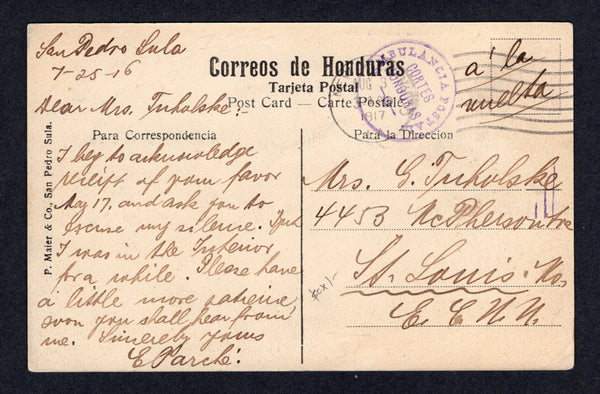 San Pedro Sula
7-25-16
Correos de Honduras
Tarjeta Postal
Post Card — Carte Postale
a' la
vuelta
AMBULANCIA POSTAL
CORTES
HONDURAS
AUG
1917
Dear Mrs. Tuholske:-
Para Correspondencia
Para la Direccion
P. Maier & Co., San Pedro Sula.
I beg to acknowledge
receipt of your favor
May 17. and ask you to
excuse my silence. But
I was in the Interior
for a while. Please have
a little more patience
soon you shall hear from
me. Sincerely yours
E Parché.
Mrs. G. Tuholske
4453 McPherson Ave
St. Louis. Mo
E E U U.